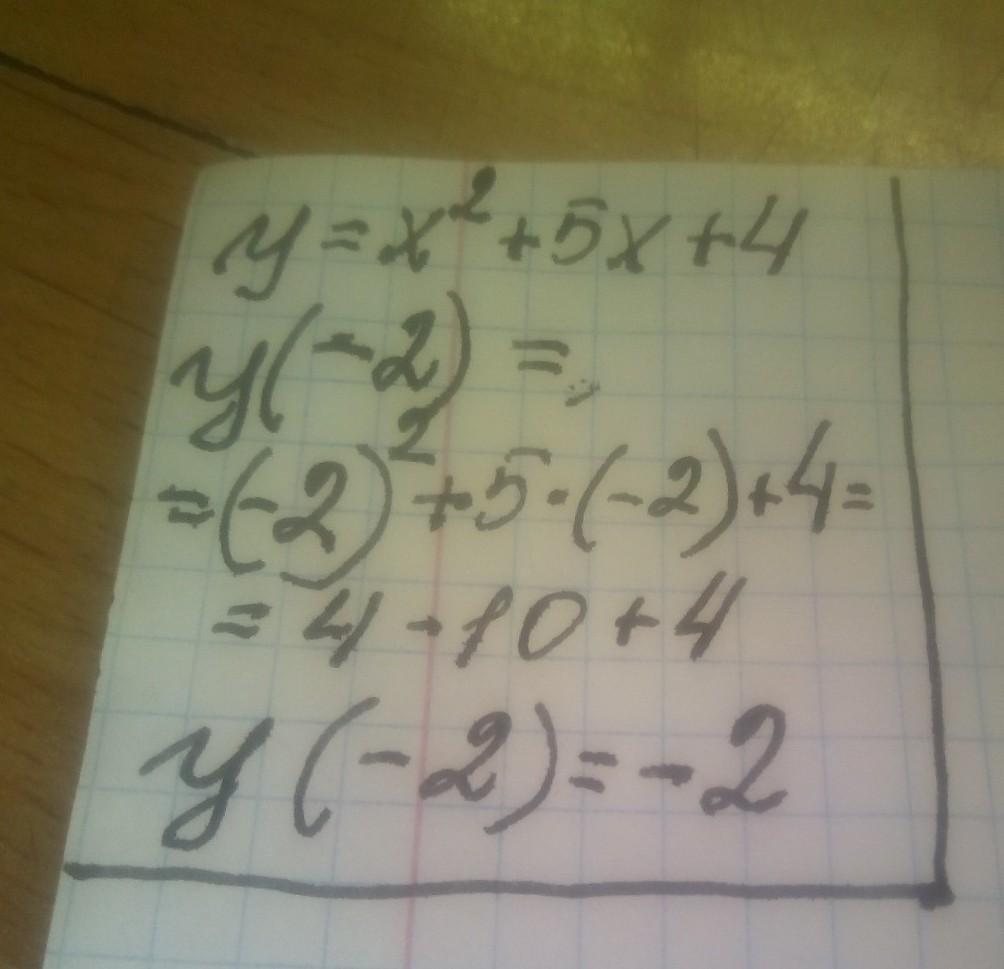 y=x²+5x+4
y(-2)=
=(-2)²+5·(-2)+4=
=4-10+4
y(-2)=-2